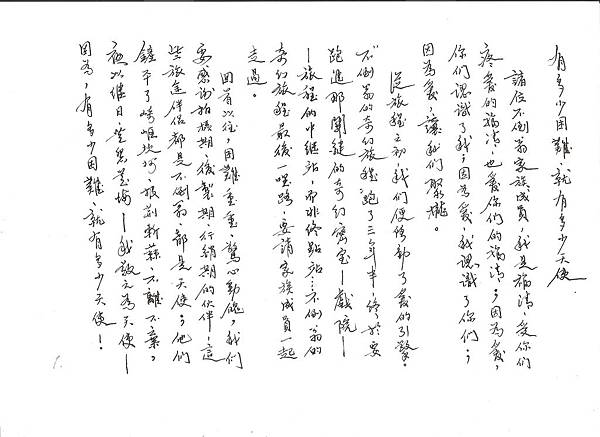 有多少困難，就有多少天使
諸位不倒翁家族成員，我是福清，受你們
疼愛的福清，也愛你們的福清；因為愛，
你們認識了我；因為愛，我認識了你們；
因為愛，讓我們聚攏。
從旅程之初，我們便啟動了愛的引擎。
不倒翁的奇幻旅程跑了三年半，終於要
跑進那關鍵的奇幻窩宝—戲院—
—旅程的中繼站，而非終點站…不倒翁的
奇幻旅程最後一哩路，要請家族成員一起
走過。
回首以往，困難重重，驚心動魄，我們
要感謝拍攝期、後製期、行銷期的伙伴，這
些旅途伴侶都是不倒翁，都是天使；他們
鏟平了崎嶇坎坷，披荊斬棘，不離不棄，
夜以繼日，
—我敬之為天使—
因為，有多少困難，就有多少天使！
1.